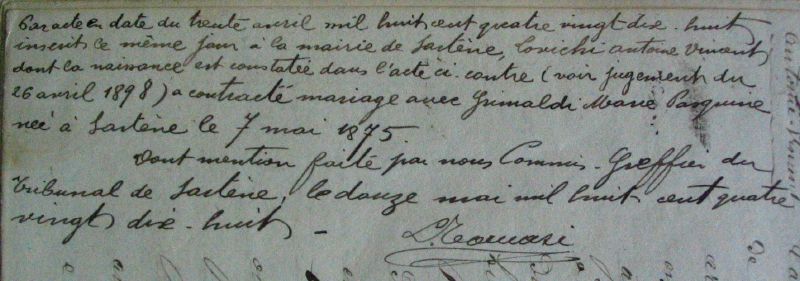 Par acte en date du trente avril mil huit cent quatre vingt dix-huit
inscrit le même jour à la mairie de Sartène, Lovichi Antoine Vincent
dont la naissance est constatée dans l'acte ci-contre (voir jugement du
26 avril 1898) a contracté mariage avec Grimaldi Marie Pasquine
née à Sartène le 7 mai 1875.
Dont mention faite par nous Commis-Greffier du
Tribunal de Sartène, le douze mai mil huit cent quatre
vingt dix-huit -